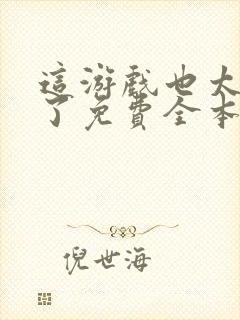 這游戲也太
了免費全本
倪世海